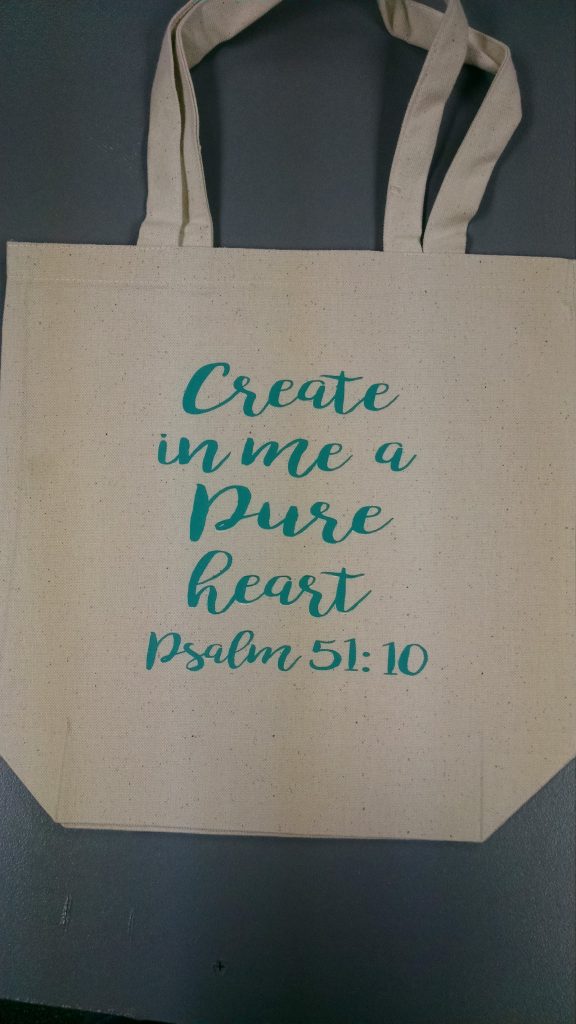 Create
in me a
Pure
heart
Psalm 51:10